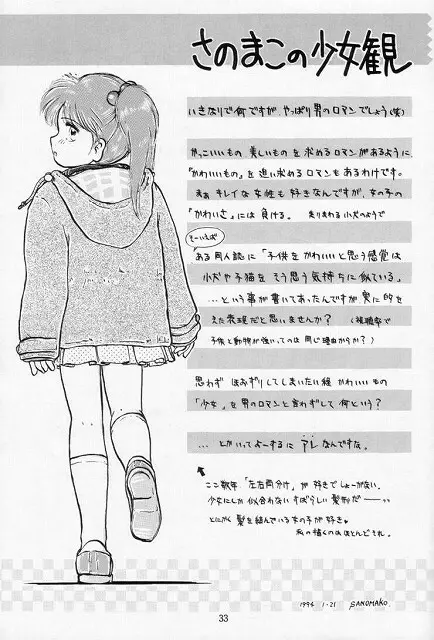 さのまこの少女観
いきなりで何ですが、やっぱり男のロマンでしょう(笑)
かっこいいもの 美しいもの を求めるロマンがあるように、
「かわいいもの」を追い求めるロマンもあるわけです。
まぁ キレイな女性も好きなんですが、女の子の
「かわいさ」には負ける。 走りまわる小犬のようで
そーいえば
ある同人誌に「子供をかわいいと思う感覚は
小犬や子猫をそう思う気持ちに似ている。」
…という事が書いてあったんですが 実に的を
えた表現だと思いませんか?
子供と動物が強いってのは同じ理由からか?)
思わず ほおずりしてしまいたい程 かわいいもの
「少女」を男のロマンと言わずして何という?
… とかいってよーするに アレ なんですな。
ここ数年「左右両分け」が好きでしょーがない。
少女にしか似合わないすばらしい髪形だ——っっ
とにかく髪を結んでいる女の子が好き。
私の描くのはほとんどそれ。
1994 1.21 SANOMAKO.
33